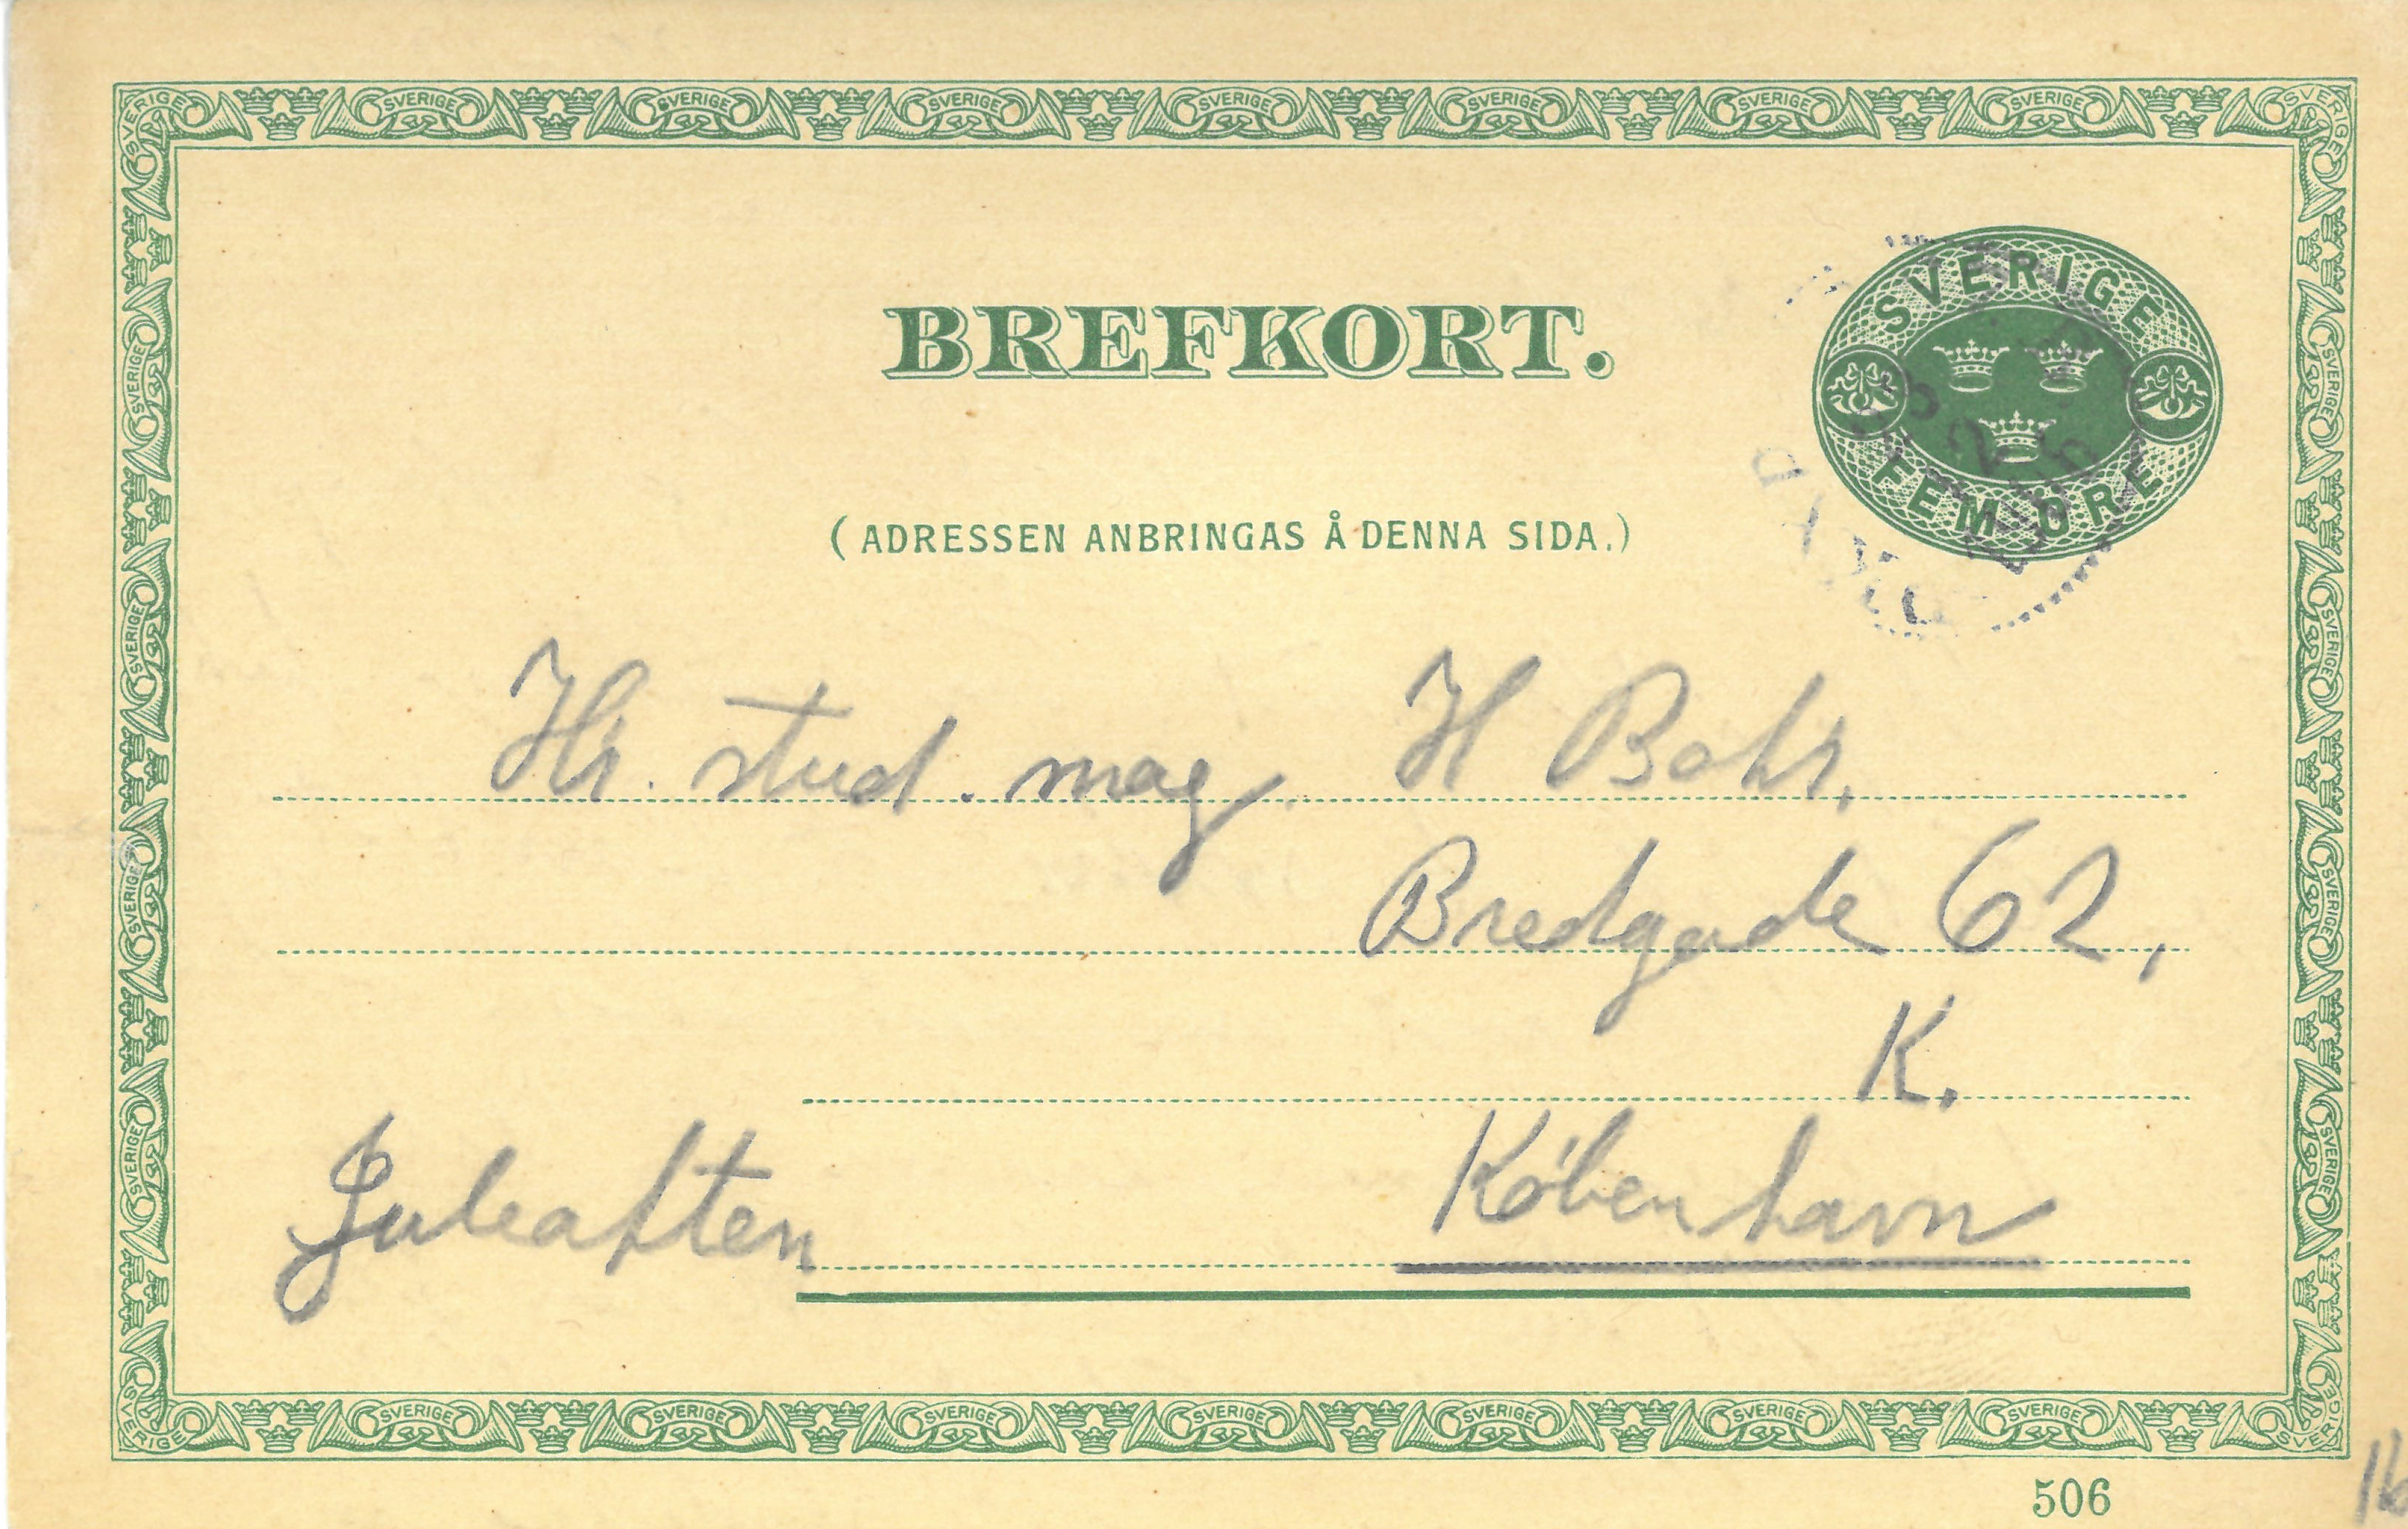 BREFKORT.
SVERIGE
FEM ÖRE
(ADRESSEN ANBRINGAS Å DENNA SIDA.)
Hr. stud. mag. H Bohr,
Bredgade 62,
K.
Juleaften
København
506
16